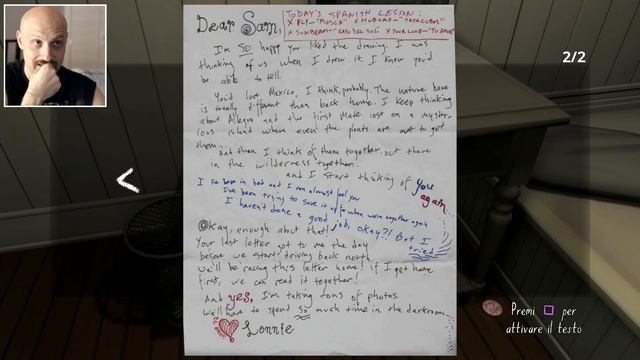 Dear Sam,
TODAY'S SPANISH LESSON:
X FLY - "MOSCA" X HUBCAP - "TAPACUBOS"
X SUNBEAM - "RAYO DEL SOL" X YOUR LOVE - "TU AMOR"
2/2
I'm SO happy you liked the drawing. I was
thinking of us when I drew it. I knew you'd
be able to tell.
You'd love Mexico, I think, probably. The nature here
is totally different than back home. I keep thinking
about Allegra and the First Mate lost on a myster-
ious island where even the plants are out to get
them...
And then I think of them together, out there
in the wilderness together...
and I start thinking of you
again.
I lie here in bed and I can almost feel you
I've been trying to save it up for when we're together again
I haven't done a good job, okay?! But I
tried
Okay, enough about that!
Your last letter got to me the day
before we start driving back north.
We'll be racing this letter home! if I get home
first, we can read it together!
And yes, I'm taking tons of photos.
We'll have to spend so much time in the darkroom...
Lonnie
Premi per
attivare il testo